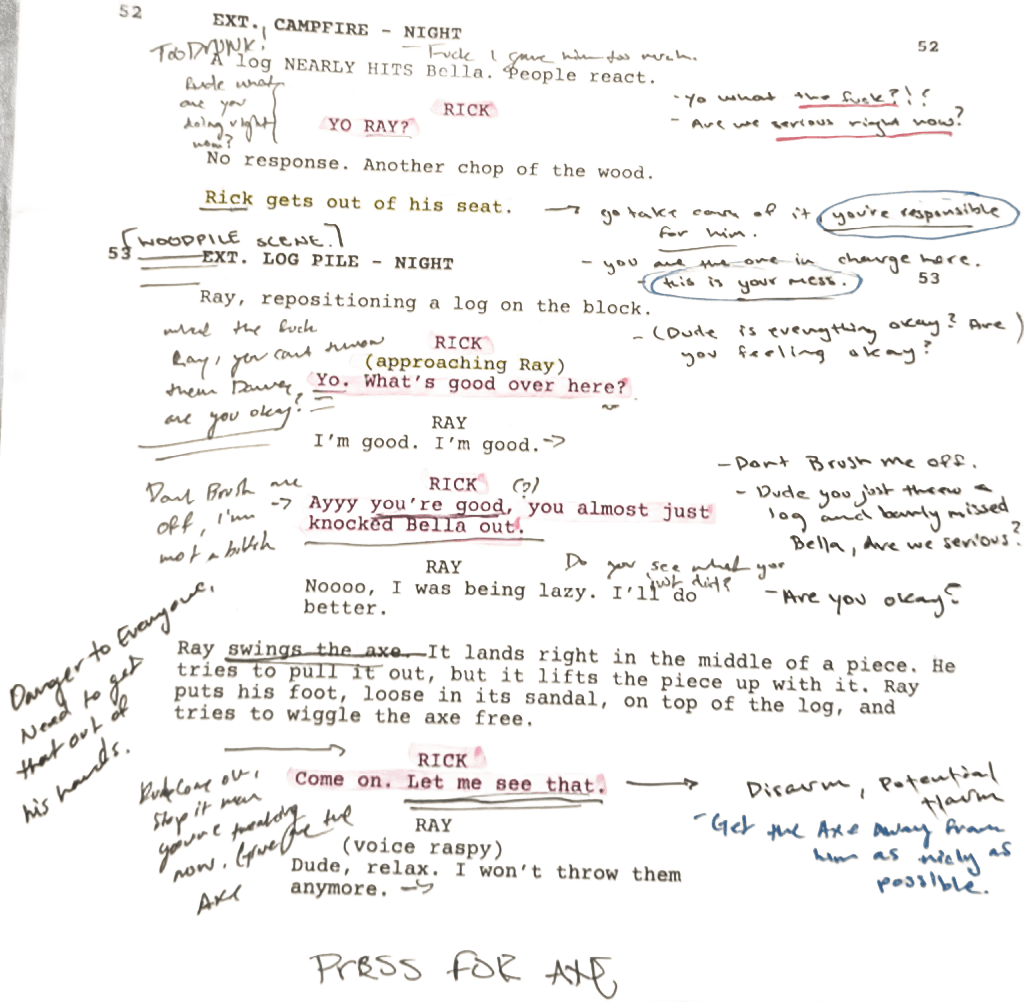 52
EXT. CAMPFIRE - NIGHT
52
Too DRUNK!
Fuck I gave him too much.
A log NEARLY HITS Bella. People react.
Dude what
are you
doing right
now?
RICK
YO RAY?
- Yo what the fuck?!?
- Are we serious right now?
No response. Another chop of the wood.
Rick gets out of his seat.
→ go take care of it, you're responsible
for him.
[WOODPILE SCENE.]
- you are the one in charge here.
- this is your mess.
53
EXT. LOG PILE - NIGHT
53
Ray, repositioning a log on the block.
what the fuck
Ray, you cant throw
them
are you okay?
- (Dude is everything okay? Are
you feeling okay?)
RICK
(approaching Ray)
Yo. What's good over here?
RAY
I'm good. I'm good. →
Dont Brush me
off, I'm
not a bitch
→
RICK (?)
Ayyy you're good, you almost just
knocked Bella out.
- Dont Brush me off.
- Dude you just threw a
log and barely missed
Bella, Are we serious?
- Are you okay?
RAY
Do you see what you
just did?
Noooo, I was being lazy. I'll do
better.
Danger to Everyone.
Need to get
that out of
his hands.
Ray swings the axe. It lands right in the middle of a piece. He
tries to pull it out, but it lifts the piece up with it. Ray
puts his foot, loose in its sandal, on top of the log, and
tries to wiggle the axe free.
→
RICK
Come on. Let me see that.
→ Disarm, Potential
Harm
- Get the Axe Away from
him as nicly as
possible.
come on,
stop it man
you're
now. Give me the
Axe
RAY
(voice raspy)
Dude, relax. I won't throw them
anymore. →
PRESS FOR AXE